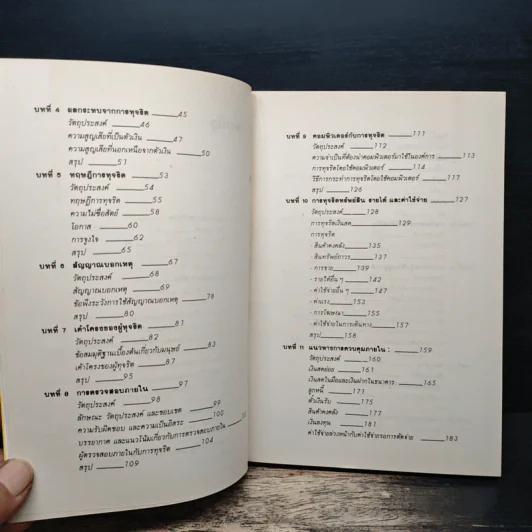 บทที่ 4 ผลกระทบจากการทุจริต 45
วัตถุประสงค์ 46
ความสูญเสียที่เป็นตัวเงิน 47
ความสูญเสียที่นอกเหนือจากตัวเงิน 50
สรุป 51
บทที่ 5 ทฤษฎีการทุจริต 53
วัตถุประสงค์ 54
ทฤษฎีการทุจริต 55
ความไม่ซื่อสัตย์ 58
โอกาส 60
การจูงใจ 62
สรุป 65
บทที่ 6 สัญญาณบอกเหตุ 67
วัตถุประสงค์ 68
สัญญาณบอกเหตุ 69
ข้อพึงระวังการใช้สัญญาณบอกเหตุ 78
สรุป 80
บทที่ 7 เค้าโครงของผู้ทุจริต 81
วัตถุประสงค์ 82
ข้อสมมุติฐานเบื้องต้นเกี่ยวกับมนุษย์ 83
เค้าโครงของผู้ทุจริต 87
สรุป 95
บทที่ 8 การตรวจสอบภายใน 97
วัตถุประสงค์ 98
ลักษณะ วัตถุประสงค์ และขอบเขต 99
ความรับผิดชอบ และความเป็นอิสระ 100
บรรยากาศ และแนวโน้มเกี่ยวกับการตรวจสอบภายใน
ผู้ตรวจสอบภายในกับการทุจริต 104
สรุป 109
บทที่ 9 คอมพิวเตอร์กับการทุจริต 111
วัตถุประสงค์ 112
ความจำเป็นที่ต้องนำคอมพิวเตอร์มาใช้ในองค์การ 113
การทุจริตโดยใช้คอมพิวเตอร์ 114
วิธีการกระทำการทุจริตโดยใช้คอมพิวเตอร์ 117
สรุป 126
บทที่ 10 การทุจริตทรัพย์สิน รายได้ และค่าใช้จ่าย 127
วัตถุประสงค์ 128
การทุจริตเงินสด 129
การทุจริต
- สินค้าคงคลัง 135
- สินทรัพย์ถาวร 137
- การขาย 139
- รายได้อื่น ๆ 142
- ค่าใช้จ่ายอื่น ๆ 147
- ค่าแรง 153
- การโฆษณา 155
- ค่าใช้จ่ายในการเดินทาง 157
สรุป 158
บทที่ 11 แนวทางการควบคุมภายใน : 159
วัตถุประสงค์ 160
เงินสดย่อย 161
เงินสดในมือและเงินฝากในธนาคาร 165
ลูกหนี้ 171
ตั๋วเงินรับ 175
สินค้าคงคลัง 177
เงินลงทุน 181
ค่าใช้จ่ายล่วงหน้ากับค่าใช้จ่ายรอการตัดจ่าย 183